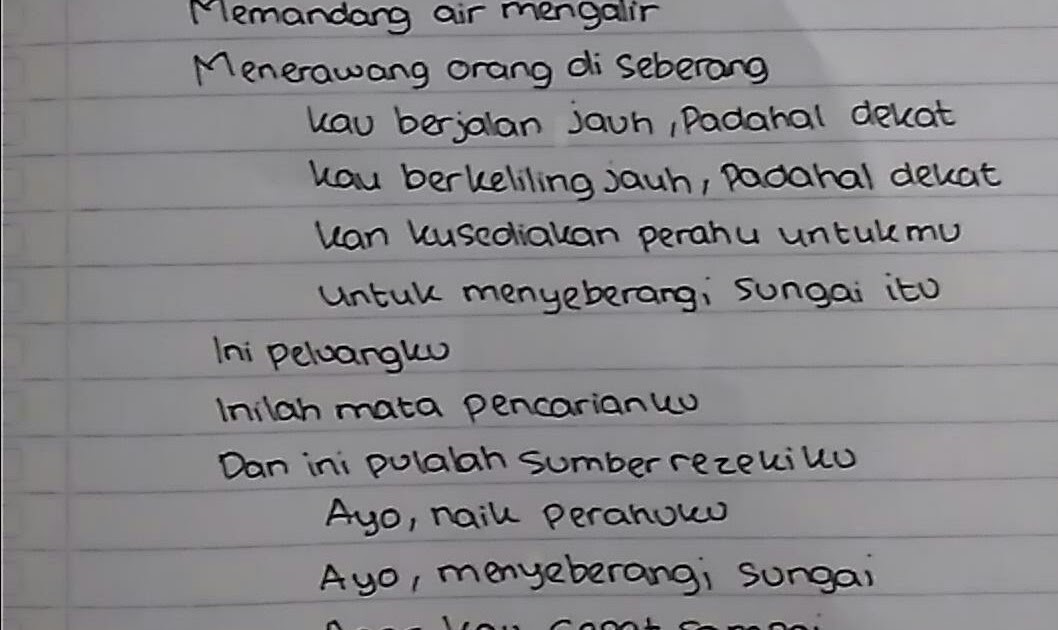 Memandang air mengalir
Menerawang orang di seberang
kau berjalan jauh, padahal dekat
kau berkeliling jauh, padahal dekat
kan kusediakan perahu untukmu
untuk menyeberangi sungai itu
Ini peluangku
Inilah mata pencarianku
Dan ini pulalah sumber rezekiku
Ayo, naik perahuku
Ayo, menyeberangi sungai
kau cepat sampai